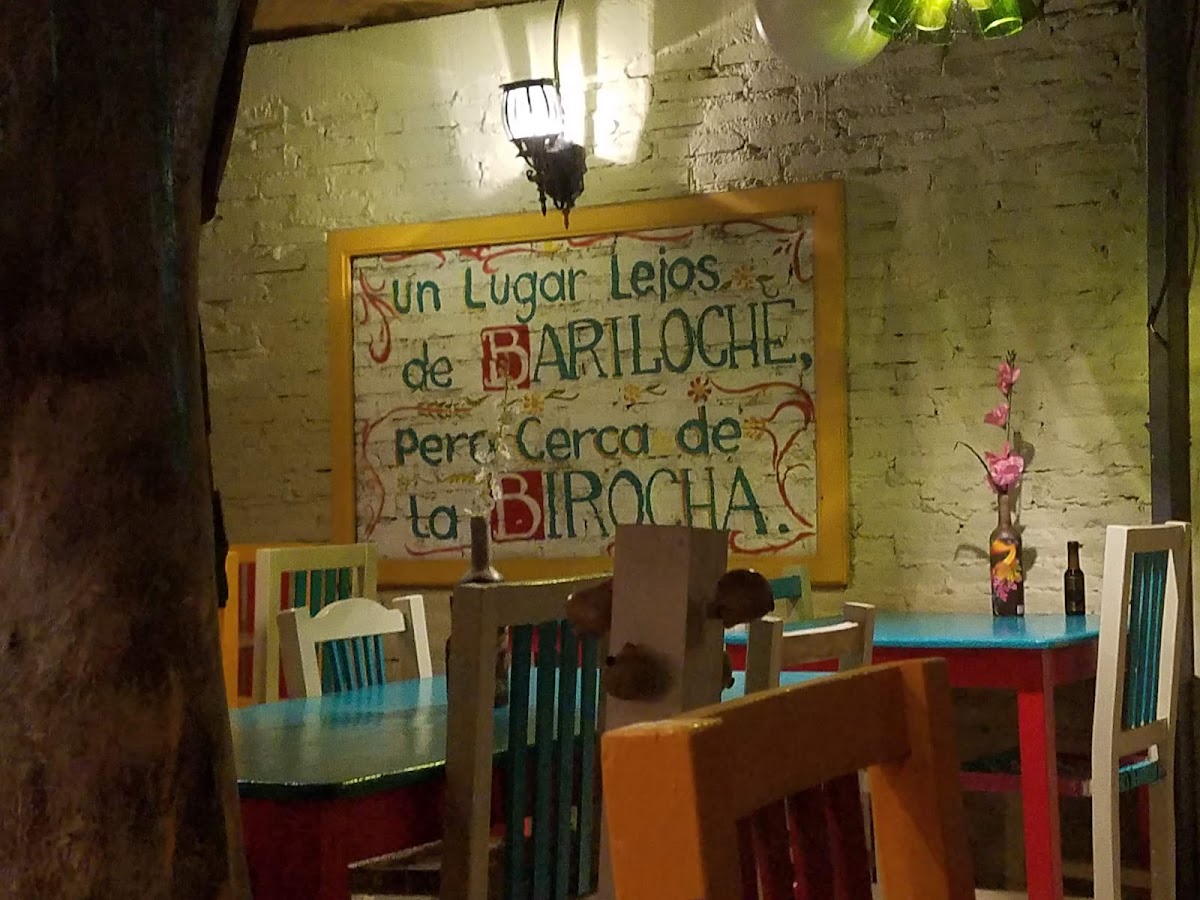 un Lugar Lejos
de BARILOCHE,
pero Cerca de
la BIROCHA.